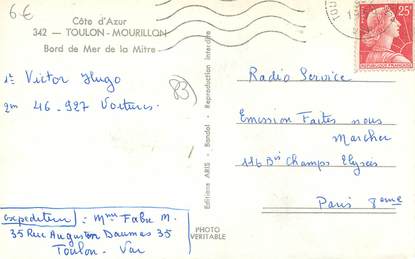 6€
Côte d'Azur
342 — TOULON-MOURILLON
Bord de Mer de la Mitre
1° Victor Hugo
2m 46-927 Voitures.
83
Editions ARIS - Bandol - Reproduction interdite
PHOTO
VERITABLE
TOU
25F
REPUBLIQUE FRANÇAISE
Radio Service
Emission Faites nous
Marcher
116 Bis Champs Elysées
Paris 8eme
expediteur: Mme Fabre M.
35 Rue Augustin Daumas 35
Toulon - Var